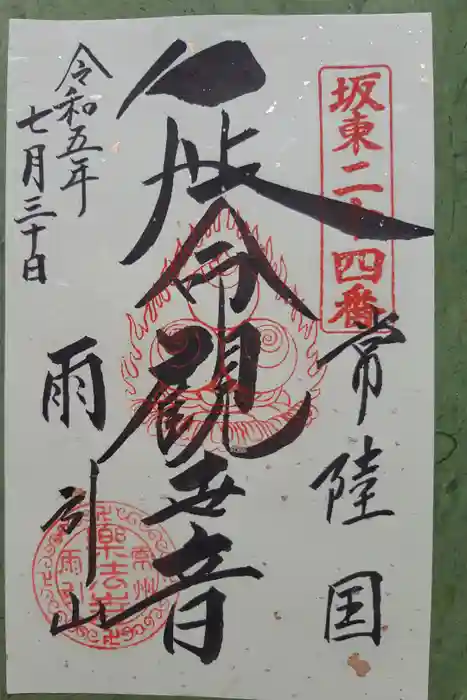 坂東二十四番
常陸国
延命観世音
雨引山
常州
樂法寺
雨引山
令和五年
七月三十日